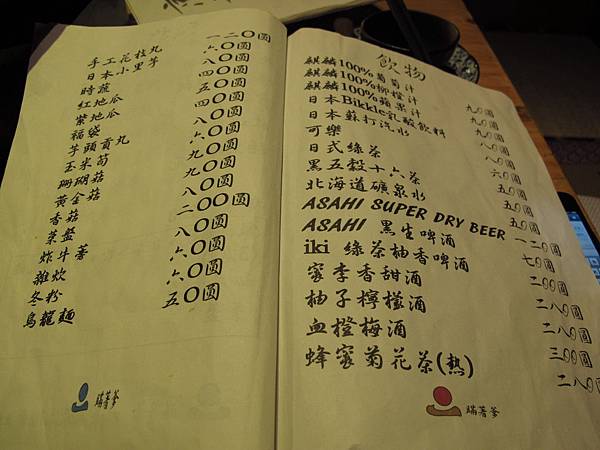 手工花枝丸 一二〇圓
日本小里芋 六〇圓
時蔬 八〇圓
紅地瓜 四〇圓
紫地瓜 五〇圓
福袋 四〇圓
芋頭貢丸 八〇圓
玉米筍 六〇圓
珊瑚菇 九〇圓
黃金菇 九〇圓
香菇 八〇圓
菜盤 二〇〇圓
炸牛蒡 八〇圓
雜炊 六〇圓
冬粉 六〇圓
烏龍麵 五〇圓
瑞著爹
飲物
麒麟100%葡萄汁 九〇圓
麒麟100%柳橙汁 九〇圓
麒麟100%蘋果汁 九〇圓
日本Bikkle乳酸飲料 八〇圓
日本蘇打汽水 八〇圓
可樂 六〇圓
日式綠茶 五〇圓
黑五穀十六茶 五〇圓
北海道礦泉水 五〇圓
ASAHI SUPER DRY BEER 一二〇圓
ASAHI 黑生啤酒 七〇圓
iki 綠茶柚香啤酒 二〇〇圓
蜜李香甜酒 二八〇圓
柚子檸檬酒 二八〇圓
血橙梅酒 三〇〇圓
蜂蜜菊花茶(熱) 二八〇圓
瑞著爹